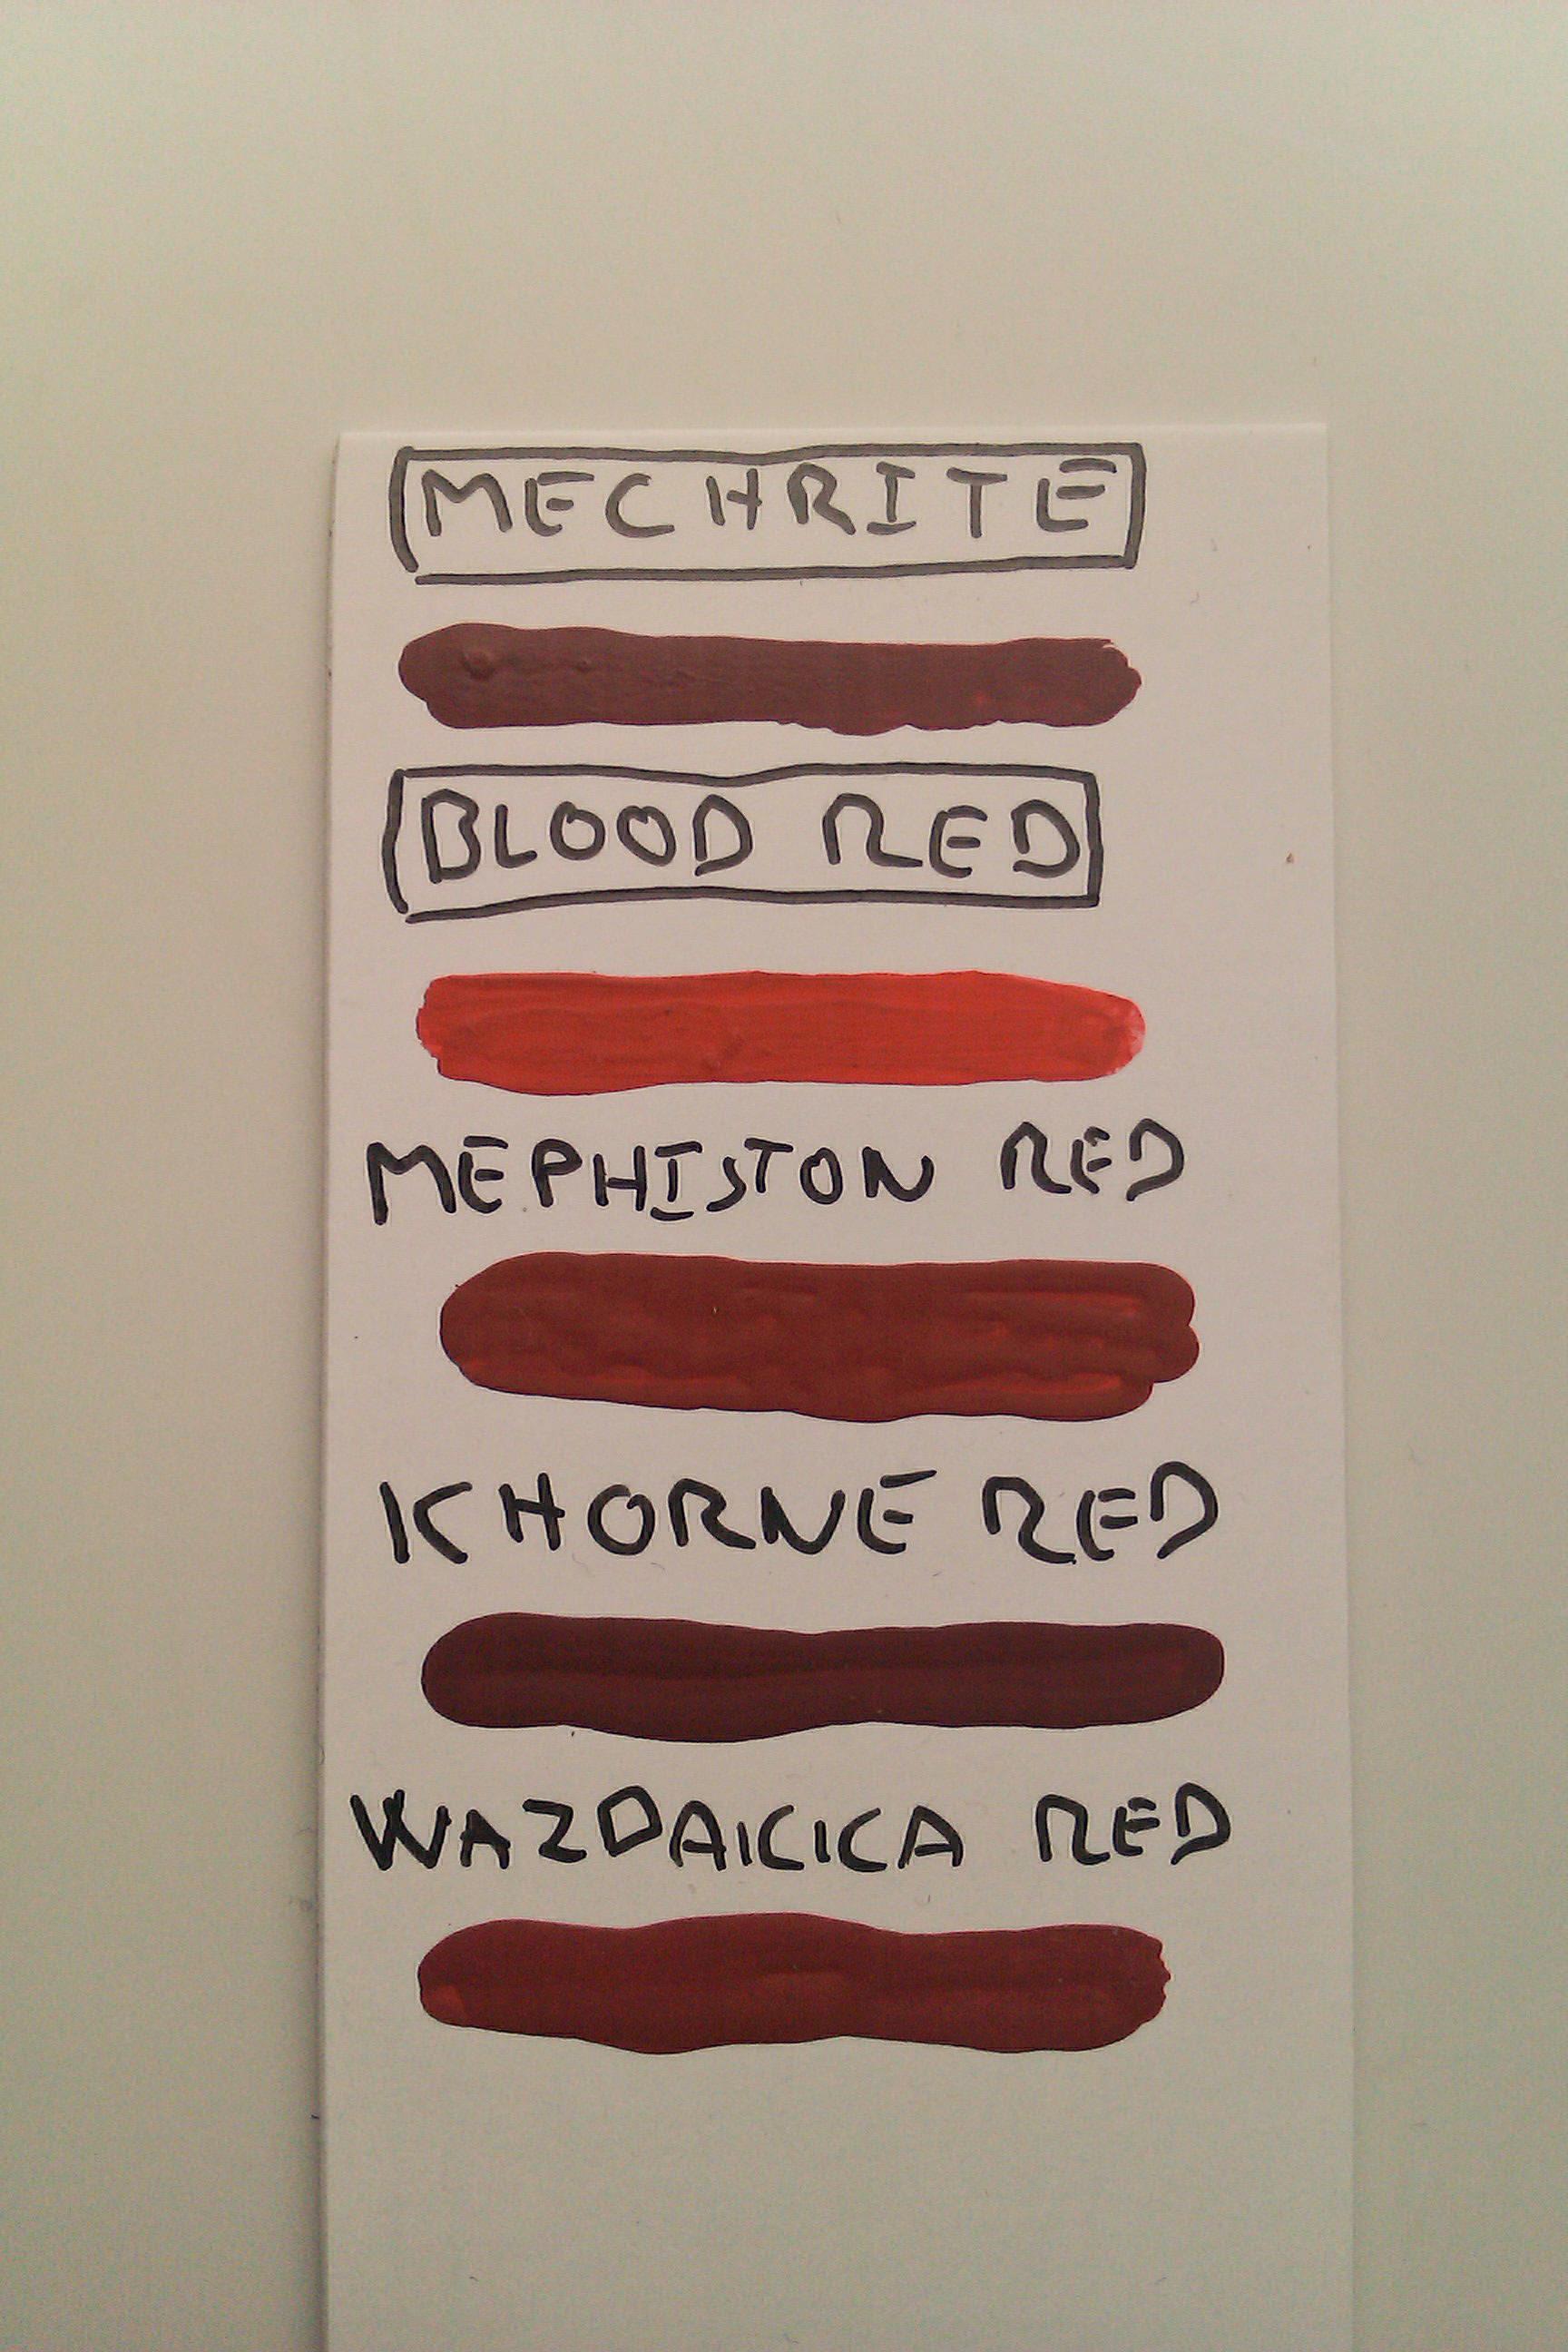 MECHRITE
BLOOD RED
MEPHISTON RED
KHORNE RED
WAZDAKKA RED